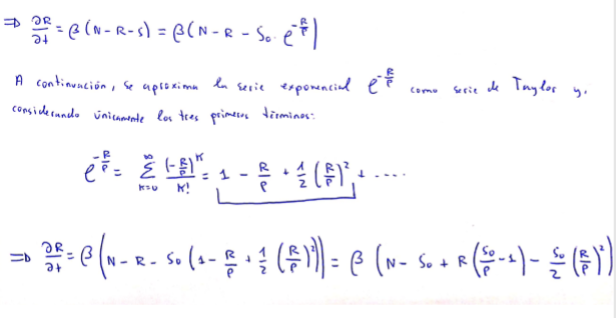 ⇒ ∂R/∂t = β(N-R-S) = β(N-R-S₀·e^(-R/ρ))
A continuación, se aproxima la serie exponencial e^(-R/ρ) como serie de Taylor y,
considerando únicamente los tres primeros términos:
e^(-R/ρ) = Σ_(k=0)^∞ (-R/ρ)^k / k! = 1 - R/ρ + 1/2 (R/ρ)² + ....
⇒ ∂R/∂t = β(N-R-S₀(1 - R/ρ + 1/2 (R/ρ)²)) = β(N-S₀+R(S₀/ρ-1) - S₀/2 (R/ρ)²)